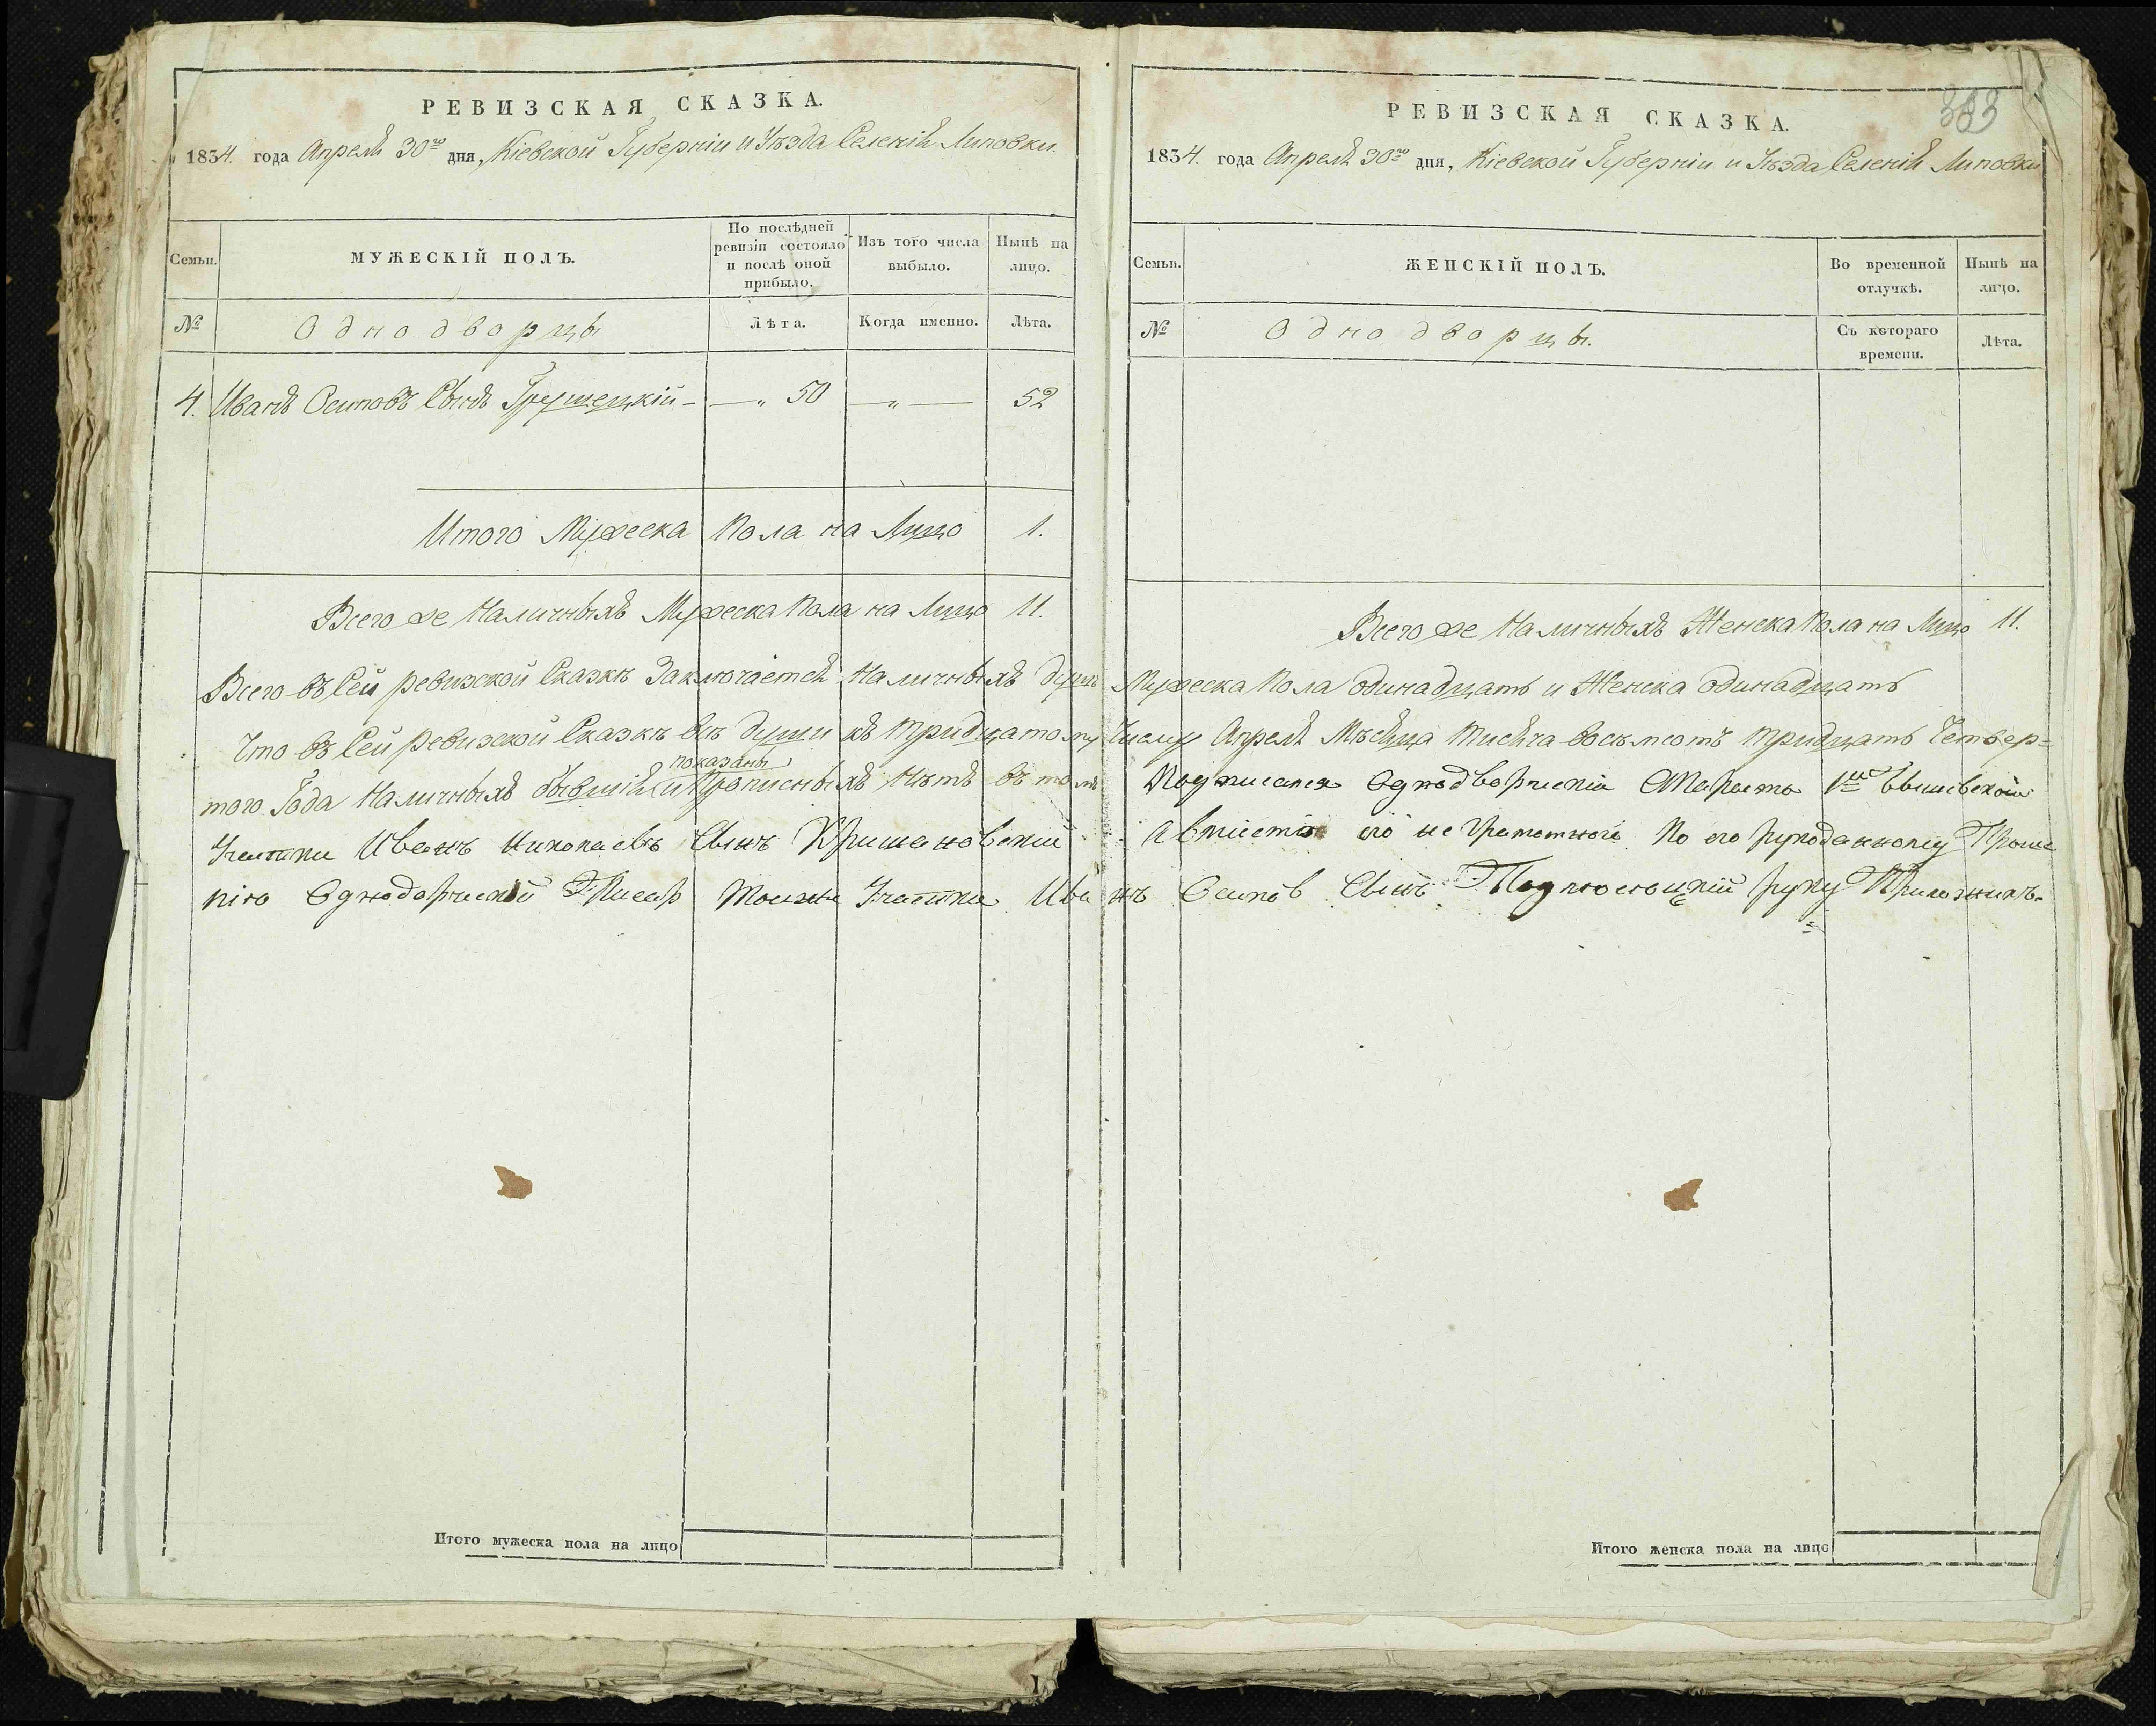 РЕВИЗСКАЯ СКАЗКА.
1834. года Апреля 30го дня, Кіевской Губерніи и Уѣзда Селенія Липовки.
Семьи.
МУЖЕСКІЙ ПОЛЪ.
По послѣдней ревизіи состояло и послѣ оной прибыло.
Изъ того числа выбыло.
Нынѣ на лицо.
№
Однодворцы
Лѣта.
Когда именно.
Лѣта.
4. Иванъ Осиповъ Сынъ Грушецкій — „ 50 — „ — 52
Итого Мужеска Пола на Лицо 1.
Всего же Наличныхъ Мужеска Пола на Лицо 11.
Всего въ Сей ревизской Сказкѣ Заключается Наличныхъ душъ
Что въ Сей ревизской Сказкѣ всѣ души къ тридцатому
показаны
того Года Наличныхъ бывшія и Прописныхъ Нѣтъ въ томъ
Участки Иванъ Николаевъ Сынъ
нію Писар Участка Ива
Итого мужеска пола на лицо
383
РЕВИЗСКАЯ СКАЗКА.
1834. года Апреля 30го дня, Кіевской Губерніи и Уѣзда Селенія Липовки
Семьи.
ЖЕНСКІЙ ПОЛЪ.
Во временной отлучкѣ.
Нынѣ на лицо.
№
Однодворцы.
Съ котораго времени.
Лѣта.
Всего же Наличныхъ Женска Пола на Лицо 11.
Мужеска Пола одинадцать и Женска одинадцать
Числу Апреля Мѣсяца Тисяча восѣмсотъ тридцать Четвер=
Подписался Однодворческій Староста
А вмѣсто его не Грамотного По его рукоданному Проше
нъ Осипов Сынъ руку Приложилъ.
Итого женска пола на лицо